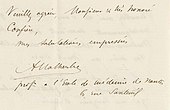 Veuillez agréer Monsieur et très honoré
Confrère,
mes salutations empressées
AMalherbe
profr à l'école de médecine de Nantes
12 rue Santeuil